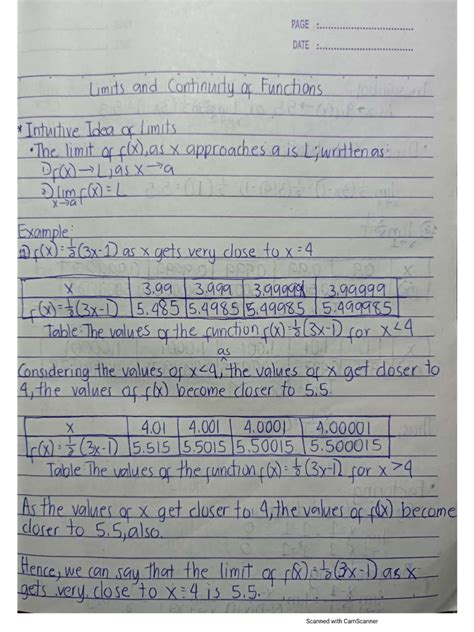 PAGE :
DATE :
Limits and Continuity of Functions
* Intuitive Idea of Limits
• The limit of f(x), as x approaches a is L; written as:
1) f(x) → L, as x → a
2) lim f(x) = L
x→a
Example:
1) f(x) = 1/2 (3x-1) as x gets very close to x = 4
x 3.99 3.999 3.9999 3.99999
f(x) = 1/2 (3x-1) 5.485 5.4985 5.49985 5.499985
Table: The values of the function f(x) = 1/2 (3x-1) for x<4
as
Considering the values of x<4, the values of x get closer to
4, the values of f(x) become closer to 5.5.
x 4.01 4.001 4.0001 4.00001
f(x) = 1/2 (3x-1) 5.515 5.5015 5.50015 5.500015
Table: The values of the function f(x) = 1/2 (3x-1) for x>4
As the values of x get closer to 4, the values of f(x) become
closer to 5.5, also.
Hence, we can say that the limit of f(x) = 1/2 (3x-1) as x
gets very close to x = 4 is 5.5.
Scanned with CamScanner